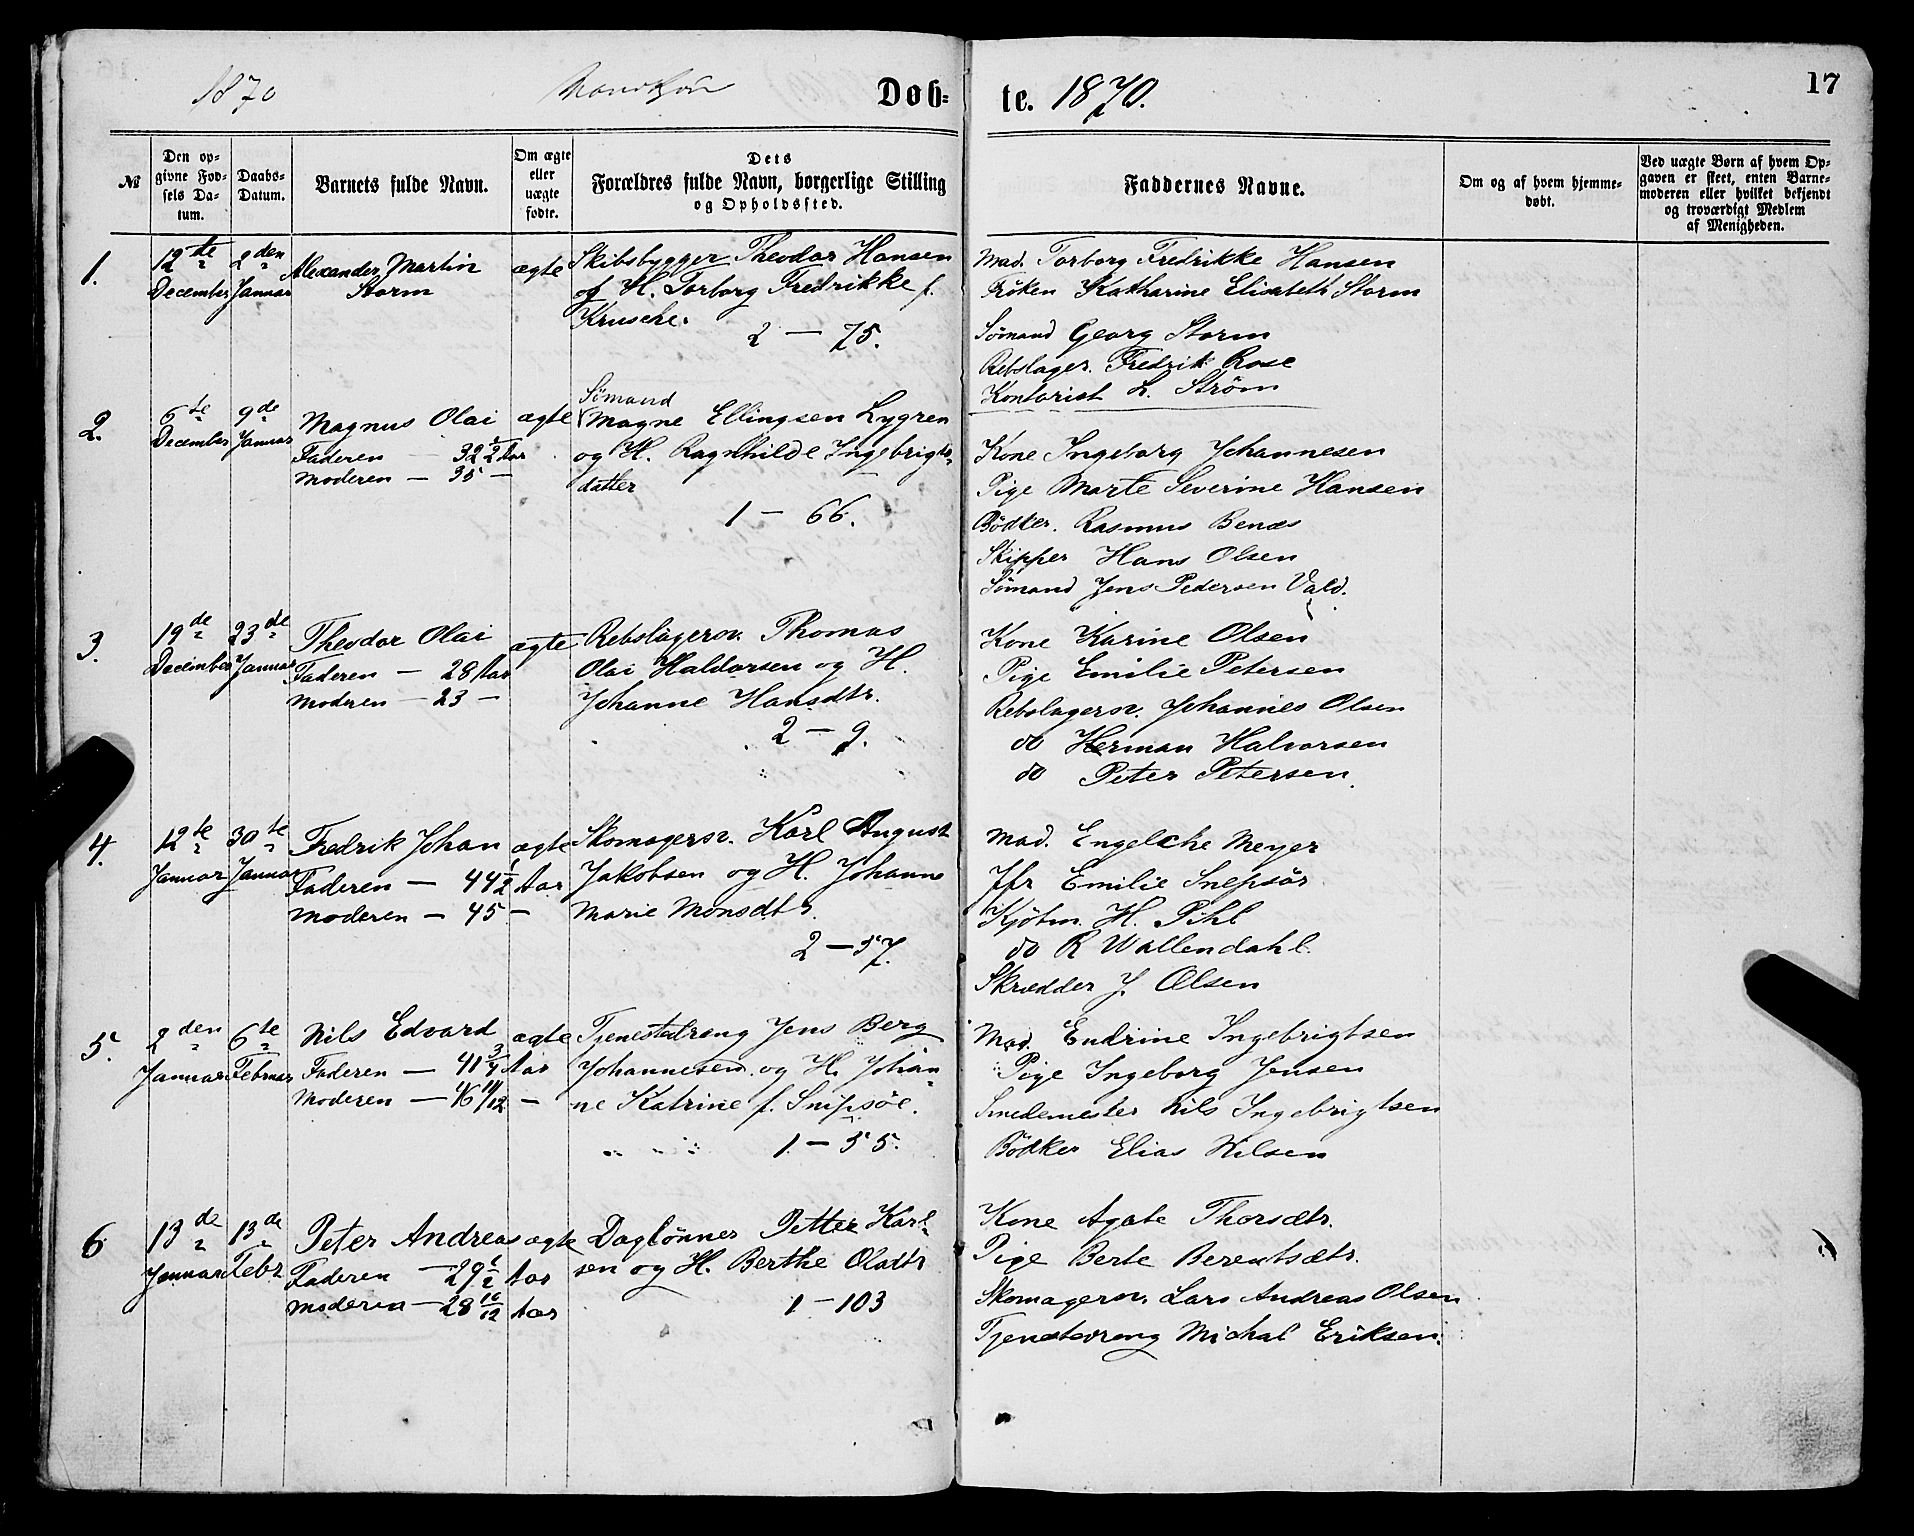 1870
Mandkjøn
Døb-
te. 1870.
17
№
Den op-
givne Fød-
sels Da-
tum.
Daabs-
Datum.
Barnets fulde Navn.
Om ægte
eller
uægte
fødte.
Dets
Forældres fulde Navn, borgerlige Stilling
og Opholdssted.
Faddernes Navne.
Om og af hvem hjemme-
døbt.
Ved uægte Børn af hvem Op-
gaven er skeet, enten Barne-
moderen eller hvilket bekjendt
og troværdigt Medlem
af Menigheden.
1.
12te
December
2den
Januar
Alexander Martin
Storm
ægte
Skibsbygger Theodor Hansen
og H. Torborg Fredrikke f.
Krusche.
2 — 75.
Mad. Torborg Fredrikke Hansen
Frøken Katharine Elisabeth Storm
Sømand Georg Storm
Rebslager. Fredrik Rose
Kontorist L. Strøm
2.
6te
December
9de
Januar
Magnus Olai
Faderen — 32 1/2 Aar
Moderen — 35 —
ægte
Sømand
Magne Ellingsen Lygren
og H. Ragnhilde Ingebrigts-
datter
1 — 66.
Kone Ingeborg Johannesen
Pige Marte Severine Hansen
Bødker. Rasmus Benæs
Skipper Hans Olsen
Sømand Jens Pedersen Vald.
3.
19de
December
23de
Januar
Theodor Olai
Faderen — 28 Aar
Moderen — 23 —
ægte
Rebslagersv. Thomas
Olai Haldorsen og H.
Johanne Hansdtr.
2 — 9.
Kone Karine Olsen
Pige Emilie Petersen
Rebslagersv. Johannes Olsen
do Herman Halvorsen
do Peter Petersen.
4.
12te
Januar
30te
Januar
Fredrik Johan
Faderen — 44 1/2 Aar
Moderen — 45 —
ægte
Skomagersv. Karl August
Jakobsen og H. Johanne
Marie Monsdtr.
2 — 57.
Mad. Engelche Meyer
Jfr Emilie Snepsør
Kjøbm. H. Pihl
do R Wallendahl.
Skrædder J. Olsen
5.
2den
Januar
6te
Februar
Nils Edvard
Faderen — 41 3/4 Aar
Moderen — 46 10/12 —
ægte
Tjenestedreng Jens Berg
Johannesen og H. Johan-
ne Katrine f. Snipsøe.
1 — 55.
Mad. Endrine Ingebrigtsen
Pige Ingeborg Jensen
Smedemester Nils Ingebrigtsen
Bødker Elias Nilsen
6
13de
Januar
13de
Febr
Peter Andreas
Faderen — 29 1/2 Aar
Moderen — 28 10/12 Aar
ægte
Daglønner Petter Karl-
sen og H. Berthe Olsdtr
1 — 103
Kone Agate Thorsdtr.
Pige Berte Berentsdtr.
Skomagersv. Lars Andreas Olsen
Tjenestedreng Michal Eriksen.